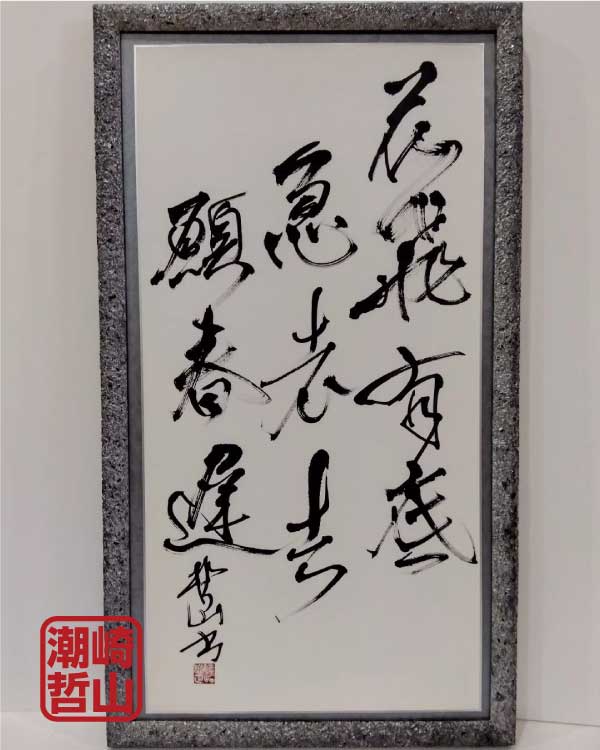 花飛有底
急老去
願春遅
哲山書
潮崎
哲山